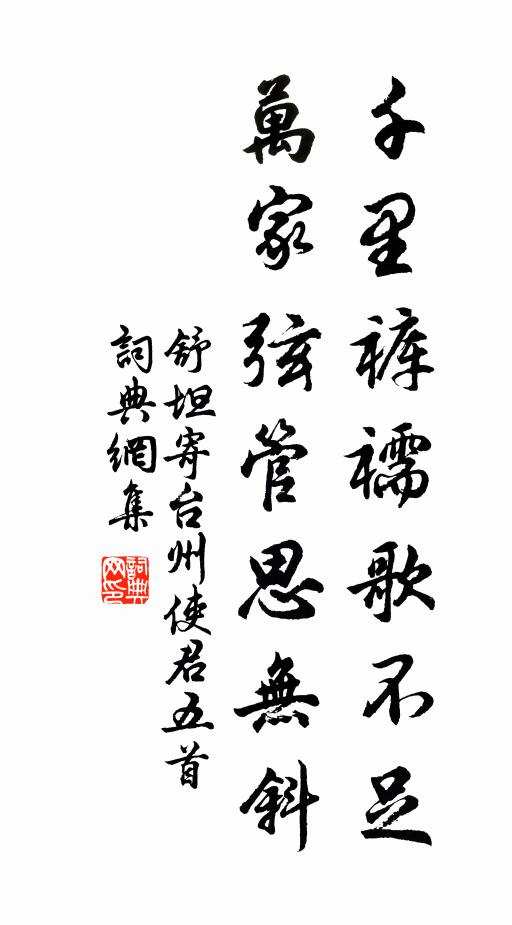 千里裤襦歌不足
萬家弦管思無斜
舒坦寄台州使君五首
詞典網集
詞典網印